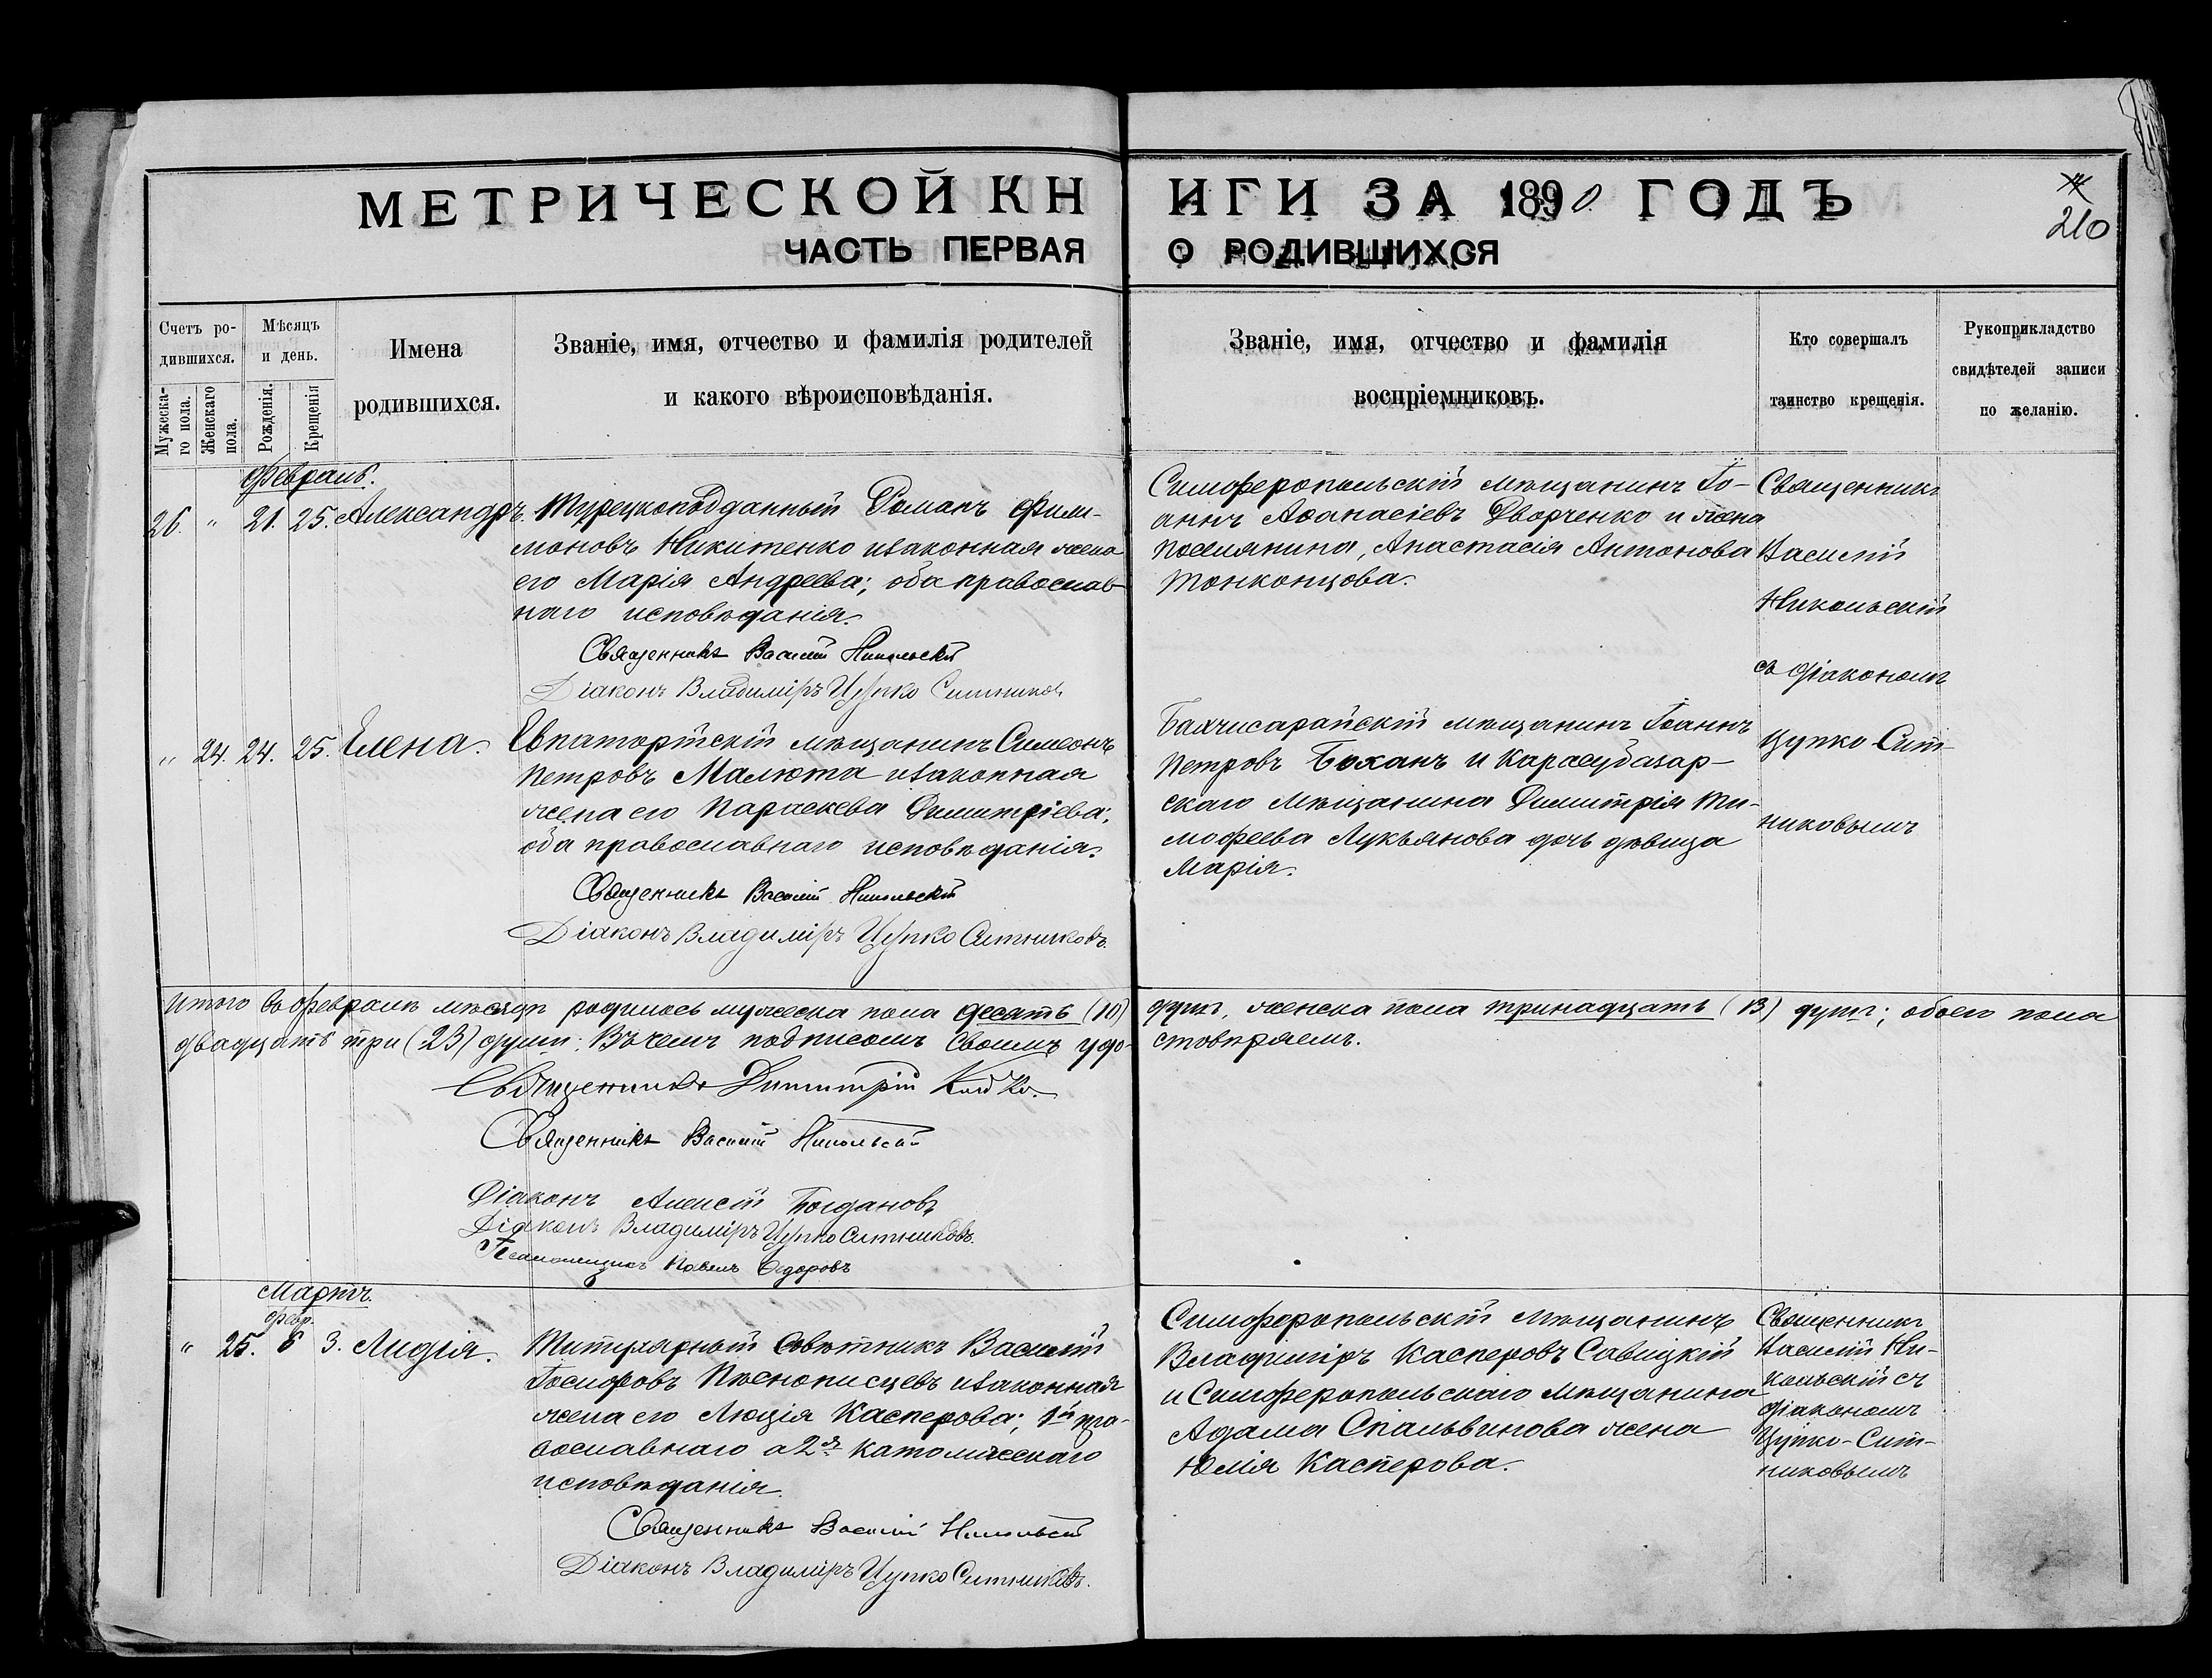 МЕТРИЧЕСКОЙ КНИГИ ЗА 1890 ГОДЪ
210
ЧАСТЬ ПЕРВАЯ О РОДИВШИХСЯ
Счетъ ро-
дившихся.
Мужеска-
го пола.
Женскаго
пола.
Мѣсяцъ
и день.
Рожденія.
Крещенія
Имена
родившихся.
Званіе, имя, отчество и фамилія родителей
и какого вѣроисповѣданія.
Званіе, имя, отчество и фамилія
воспріемниковъ.
Кто совершалъ
таинство крещенія.
Рукоприкладство
свидѣтелей записи
по желанію.
Февраль.
26. " 21. 25. Александръ.
Турецкоподданный Романъ Фили-
моновъ Никитенко и законная жена
его Марія Андреева; оба православ-
наго исповѣданія.
Священникъ Василій Никольскій
Діаконъ Владиміръ Цупко Ситниковъ
Симферопольскій мѣщанинъ Іо-
аннъ Аѳанасіевъ Дворченко и жена
поселянина, Анастасія Антонова
Тонконцова.
Священникъ
Василій
Никольскій
съ діакономъ
Цупко-Сит-
никовымъ
" 24. 24. 25. Елена.
Евпаторійскій мѣщанинъ Симеонъ
Петровъ Малюта и законная
жена его Параскева Димитріева;
оба православнаго исповѣданія.
Священникъ Василій Никольскій
Діаконъ Владиміръ Цупко Ситниковъ.
Бахчисарайскій мѣщанинъ Іоаннъ
Петровъ Боханъ и Карасубазар-
скаго мѣщанина Димитрія Ти-
мофеева Лукьянова дочь дѣвица
Марія.
Итого въ Февралѣ мѣсяцѣ родилось мужеска пола десять (10) душъ, женска пола тринадцать (13) душъ; обоего пола
двадцать три (23) душъ; Въ чемъ подписомъ своимъ удо-стовѣряемъ.
Священникъ Димитрій
Священникъ Василій Никольскій
Діаконъ Алексій Богдановъ
Діаконъ Владиміръ Цупко Ситниковъ.
Псаломщикъ Павелъ Ѳедоровъ
Мартъ.
февр.
" 25. 6 3. Лидія.
Титулярный Совѣтникъ Василій
Іосифовъ Пѣснописцевъ и законная
жена его Люція Касперова; 1й пра-
вославнаго а 2я католическаго
исповѣданія.
Священникъ Василій Никольскій
Діаконъ Владиміръ Цупко Ситниковъ.
Симферопольскій мѣщанинъ
Владиміръ Касперовъ Савицкій
и Симферопольскаго мѣщанина
Адама Спальвинова жена
Юлія Касперова.
Священникъ
Василій Ни-
кольскій съ
діакономъ
Цупко-Сит-
никовымъ